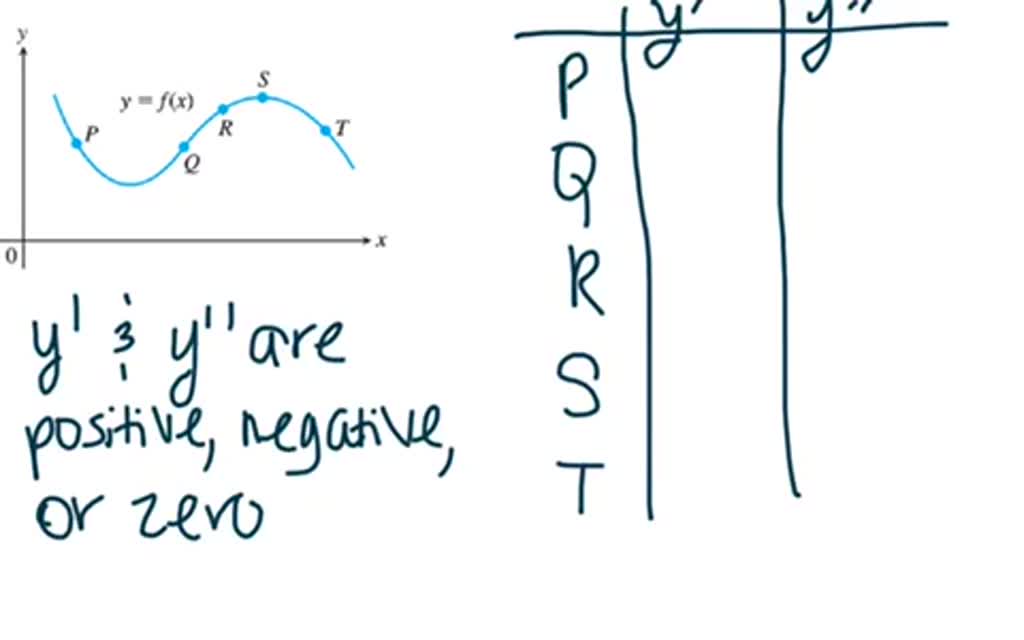 y
y = f(x)
S
P
R
T
Q
0
x
y' y"
P
Q
R
S
T
y' & y" are
positive, negative,
or zero